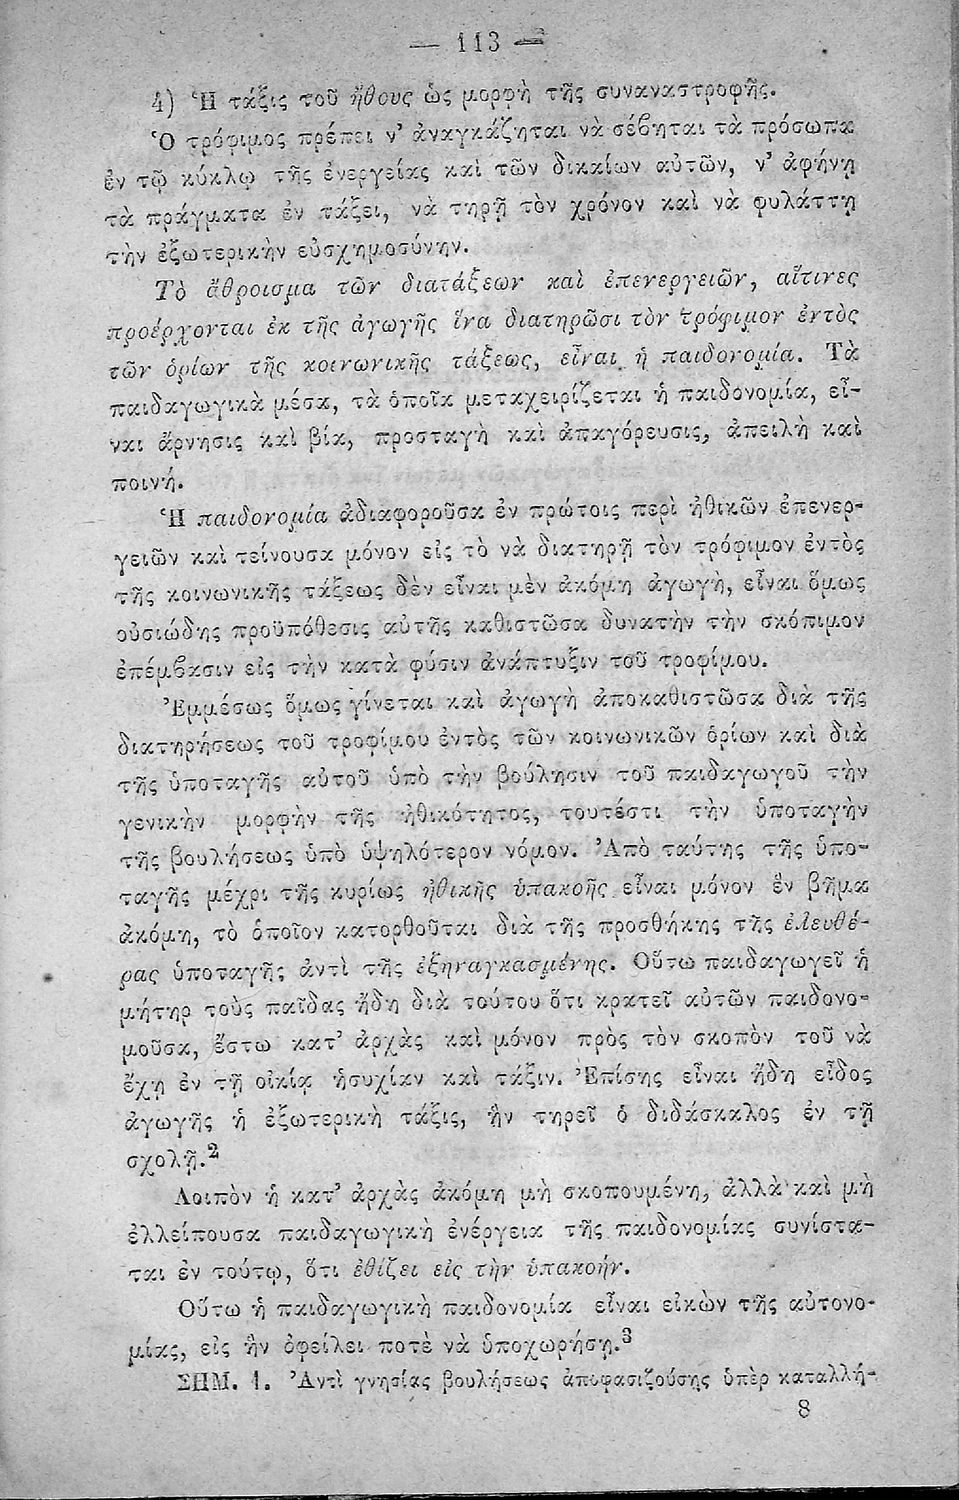 — 113 —
4) Ἡ τάξις τοῦ ἤθους ὡς μορφὴ τῆς συναναστροφῆς.
Ὁ τρόφιμος πρέπει ν' ἀναγκάζηται νὰ σέβηται τὰ πρόσωπα
ἐν τῷ κύκλῳ τῆς ἐνεργείας καὶ τῶν δικαίων αὐτῶν, ν' ἀφήνῃ
τὰ πράγματα ἐν τάξει, νὰ τηρῇ τὸν χρόνον καὶ νὰ φυλάττῃ
τὴν ἐξωτερικὴν εὐσχημοσύνην.
Τὸ ἄθροισμα τῶν διατάξεων καὶ ἐπενεργειῶν, αἵτινες
προέρχονται ἐκ τῆς ἀγωγῆς ἵνα διατηρῶσι τὸν τρόφιμον ἐντὸς
τῶν ὁρίων τῆς κοινωνικῆς τάξεως, εἶναι ἡ παιδονομία. Τὰ
παιδαγωγικὰ μέσα, τὰ ὁποῖα μεταχειρίζεται ἡ παιδονομία, εἶ-
ναι ἄρνησις καὶ βία, προσταγὴ καὶ ἀπαγόρευσις, ἀπειλὴ καὶ
ποινή.
Ἡ παιδονομία ἀδιαφοροῦσα ἐν πρώτοις περὶ ἠθικῶν ἐπενερ-
γειῶν καὶ τείνουσα μόνον εἰς τὸ νὰ διατηρῇ τὸν τρόφιμον ἐντὸς
τῆς κοινωνικῆς τάξεως δὲν εἶναι μὲν ἀκόμη ἀγωγὴ, εἶναι ὅμως
οὐσιώδης προϋπόθεσις αὐτῆς καθιστῶσα δυνατὴν τὴν σκόπιμον
ἐπέμβασιν εἰς τὴν κατὰ φύσιν ἀνάπτυξιν τοῦ τροφίμου.
Ἐμμέσως ὅμως γίνεται καὶ ἀγωγὴ ἀποκαθιστῶσα διὰ τῆς
διατηρήσεως τοῦ τροφίμου ἐντὸς τῶν κοινωνικῶν ὁρίων καὶ διὰ
τῆς ὑποταγῆς αὐτοῦ ὑπὸ τὴν βούλησιν τοῦ παιδαγωγοῦ τὴν
γενικὴν μορφὴν τῆς ἠθικότητος, τουτέστι τὴν ὑποταγὴν
τῆς βουλήσεως ὑπὸ ὑψηλότερον νόμον. Ἀπὸ ταύτης τῆς ὑπο-
ταγῆς μέχρι τῆς κυρίως ἠθικῆς ὑπακοῆς εἶναι μόνον ἓν βῆμα
ἀκόμη, τὸ ὁποῖον κατορθοῦται διὰ τῆς προσθήκης τῆς ἐλευθέ-
ρας ὑποταγῆς ἀντὶ τῆς ἐξηναγκασμένης. Οὕτω παιδαγωγεῖ ἡ
μήτηρ τοὺς παῖδας ἤδη διὰ τούτου ὅτι κρατεῖ αὐτῶν παιδονο-
μοῦσα, ἔστω κατ' ἀρχὰς καὶ μόνον πρὸς τὸν σκοπὸν τοῦ νὰ
ἔχῃ ἐν τῇ οἰκίᾳ ἡσυχίαν καὶ τάξιν. Ἐπίσης εἶναι ἤδη εἶδος
ἀγωγῆς ἡ ἐξωτερικὴ τάξις, ἣν τηρεῖ ὁ διδάσκαλος ἐν τῇ
σχολῇ.²
Λοιπὸν ἡ κατ' ἀρχὰς ἀκόμη μὴ σκοπουμένη, ἀλλὰ καὶ μὴ
ἐλλείπουσα παιδαγωγικὴ ἐνέργεια τῆς παιδονομίας συνίστα-
ται ἐν τούτῳ, ὅτι ἐθίζει εἰς τὴν ὑπακοήν.
Οὕτω ἡ παιδαγωγικὴ παιδονομία εἶναι εἰκὼν τῆς αὐτονο-
μίας, εἰς ἣν ὀφείλει ποτὲ νὰ ὑποχωρήσῃ.³
ΣΗΜ. 1. Ἀντὶ γνησίας βουλήσεως ἀποφασιζούσης ὑπὲρ καταλλή-
8